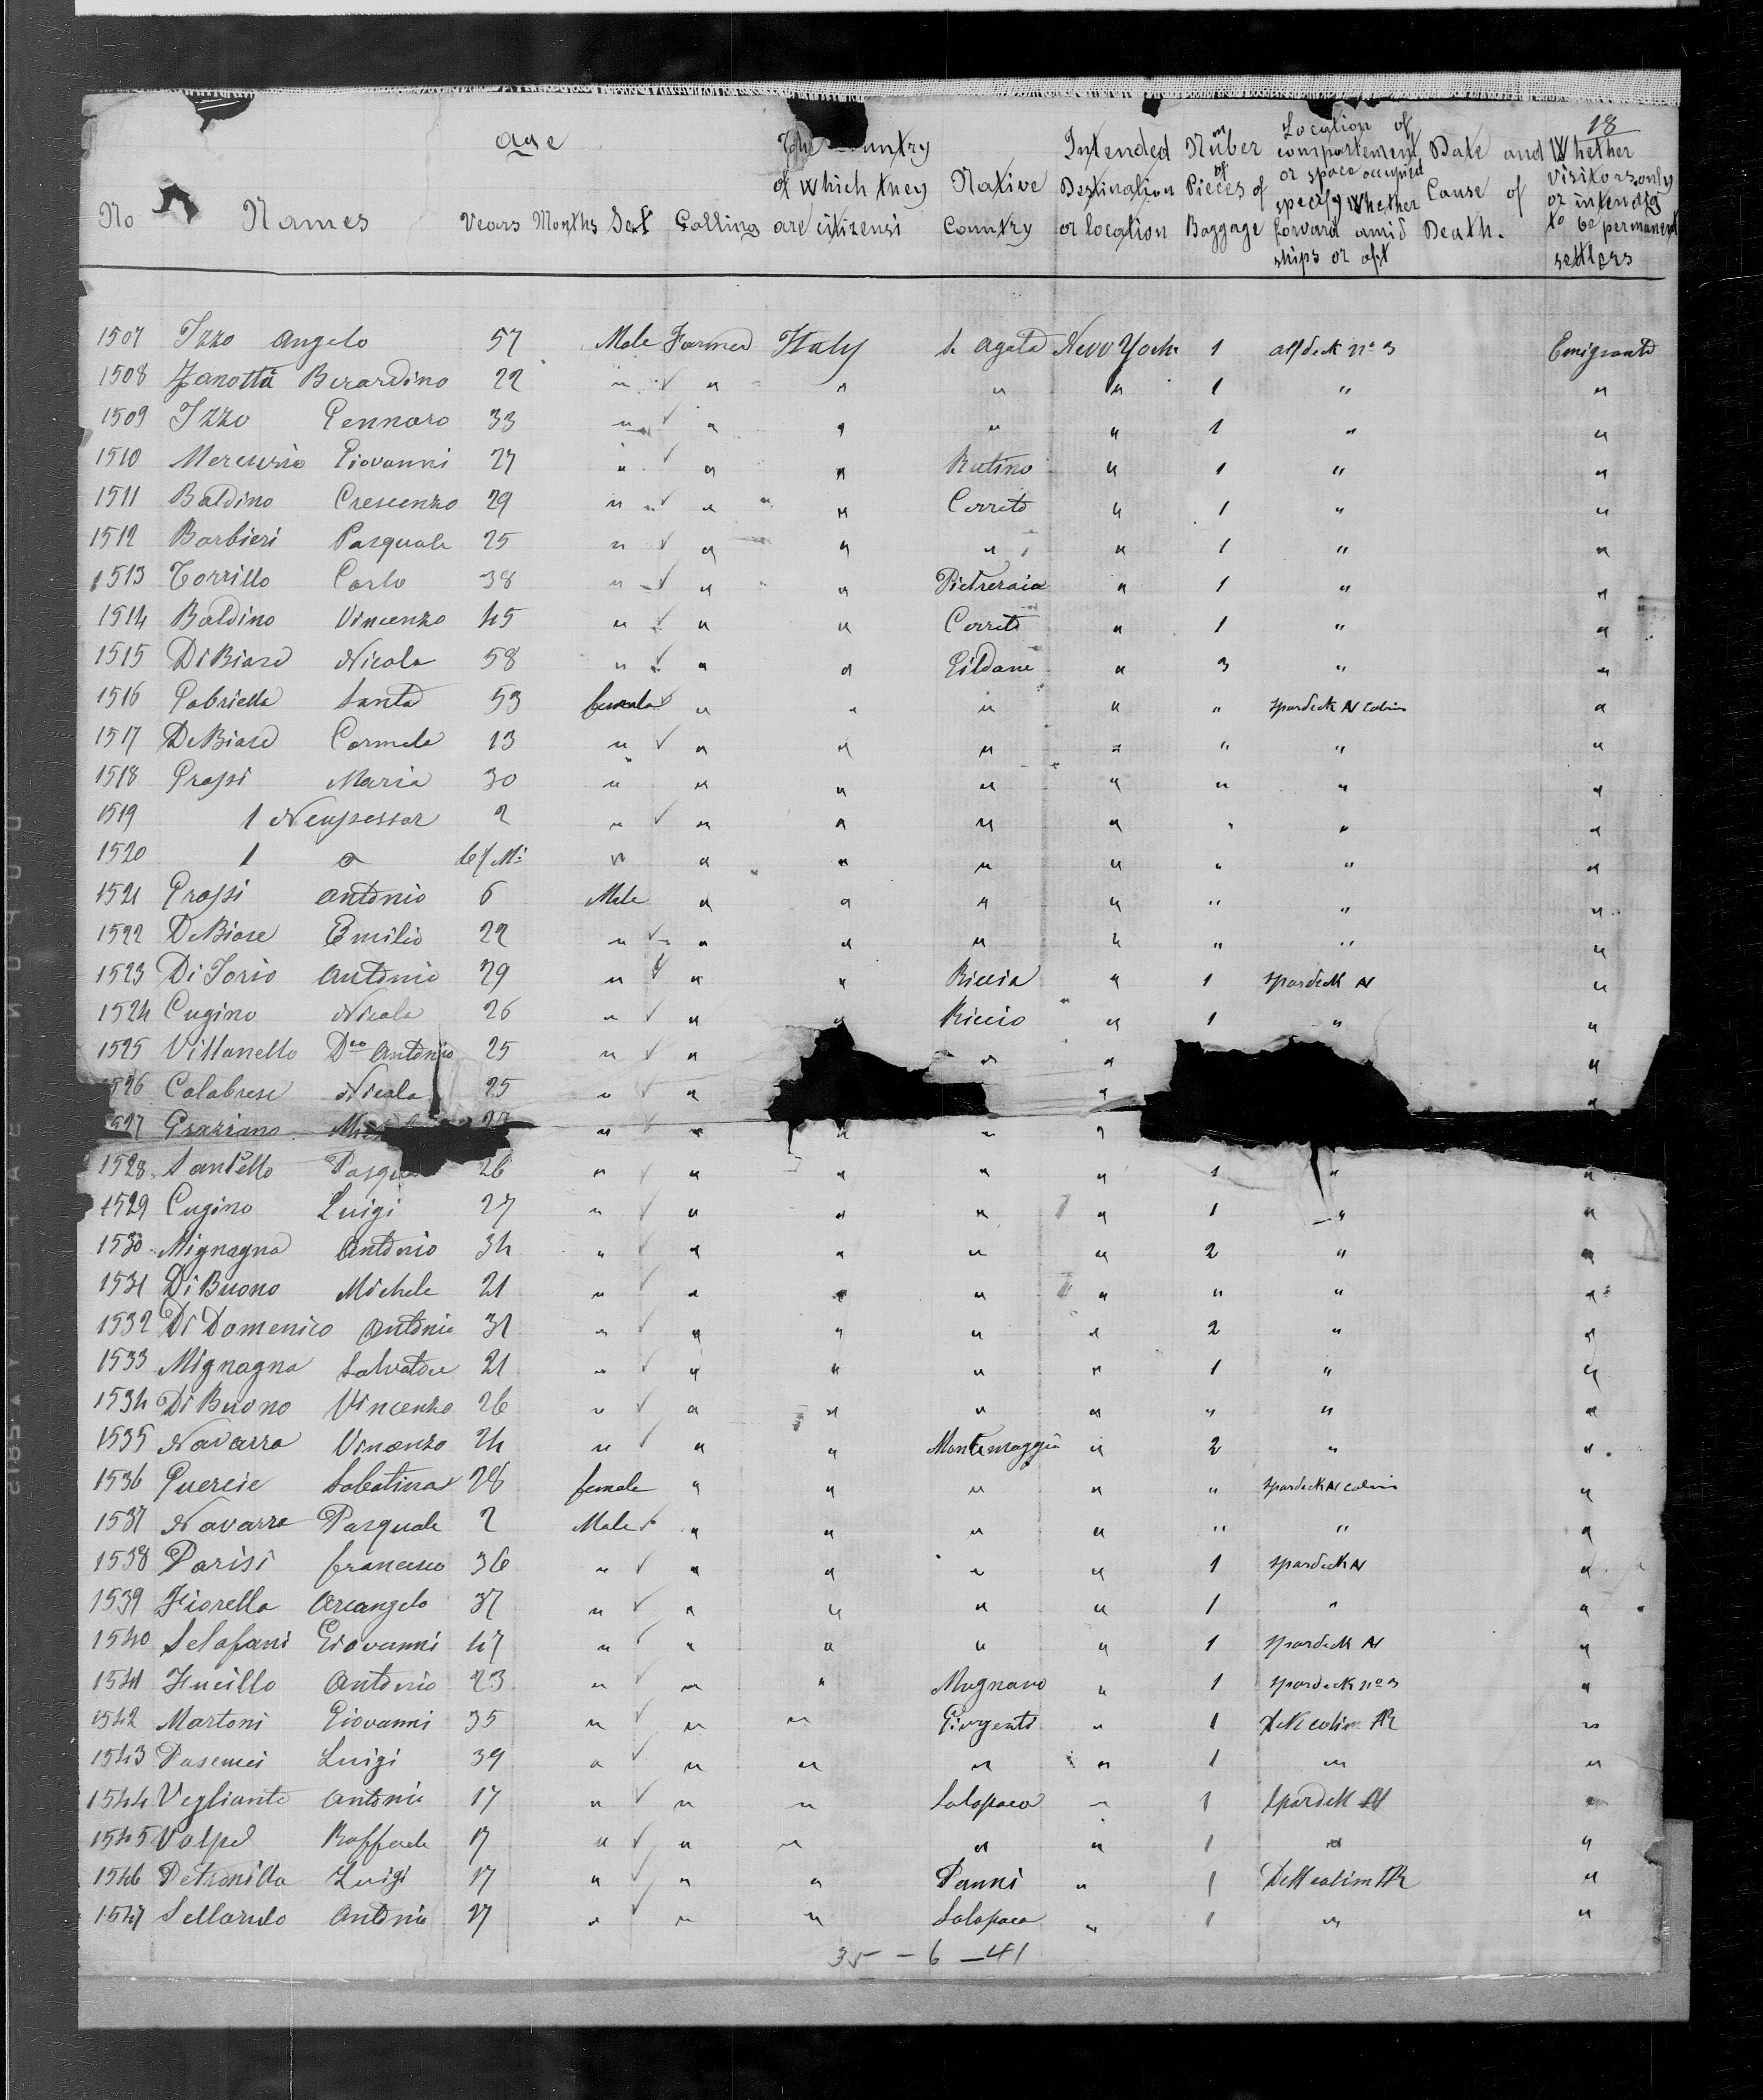 18
No Names age Years Months Sex Calling The Country of which they are citizens Native Country Intended Destination or location Number of Pieces of Baggage Location of compartement or space occupied specify whether forward amid ships or aft Date and Cause of Death. Whether visitors only or intendig to be permanent settlers
1507 Izzo Angelo 57 Male Farmer Italy S. Agata New York 1 aftdeck no 3 Emigrants
1508 Zanotta Berardino 22 " " " " " 1 " "
1509 Izzo Gennaro 33 " " " " " 1 " "
1510 Mercurio Giovanni 27 " " " Rutino " 1 " "
1511 Baldino Crescenzo 29 " " " Cerreto " 1 " "
1512 Barbieri Pasquale 25 " " " " " 1 " "
1513 Torrillo Carlo 38 " " " Pietreraia " 1 " "
1514 Baldino Vincenzo 45 " " " Cerreto " 1 " "
1515 DiBiase Nicola 58 " " " Gildone " 3 " "
1516 Gabriella Santa 53 female " " " " " spardeck N cabin "
1517 DeBiase Carmela 13 " " " " " " " "
1518 Grassi Maria 30 " " " " " " " "
1519 1 2 " " " " " " " "
1520 1 " " " " " " " "
1521 Grassi Antonio 6 Male " " " " " " "
1522 DeBiase Emilio 22 " " " " " " " "
1523 Di Iorio Antonio 29 " " " Riccia " 1 spardeck N "
1524 Cugino Nicola 26 " " " Riccio " 1 " "
1525 Villanello Dco Antonio 25 " " " " "
1526 Calabrese Nicola 25 " " " "
1527 Graziano " " " " "
1528 Santello Pasqu 26 " " " " " 1 " "
1529 Cugino Luigi 27 " " " " " 1 " "
1530 Mignagna Antonio 34 " " " " " 2 " "
1531 Di Buono Michele 21 " " " " " " " "
1532 Di Domenico Antonio 31 " " " " " 2 " "
1533 Mignagna Salvatore 21 " " " " " 1 " "
1534 Di Buono Vincenzo 26 " " " " " " " "
1535 Navarra Vincenzo 24 " " " Montemaggio " 2 " "
1536 Guercie Sabatina 28 female " " " " " spardeck N cabin "
1537 Navarra Pasquale 2 Male " " " " " " "
1538 Parisi francesco 36 " " " " " 1 spardeck N "
1539 Fiorella Arcangelo 37 " " " " " 1 " "
1540 Selafani Giovanni 47 " " " " " 1 spardeck N "
1541 Fucillo Antonio 23 " " " Mugnano " 1 spardeck no 3 "
1542 Martoni Giovanni 35 " " " Girgenti " 1 "
1543 Luigi 39 " " " " " 1 " "
1544 Vegliante Antonio 17 " " " Solopaca " 1 spardeck N "
1545 Volpe Raffaele 17 " " " " " 1 " "
1546 Petronilla Luigi 17 " " " Panni " 1 "
1547 Sellarulo Antonio 27 " " " Solopaca " 1 " "
35 - 6 - 41